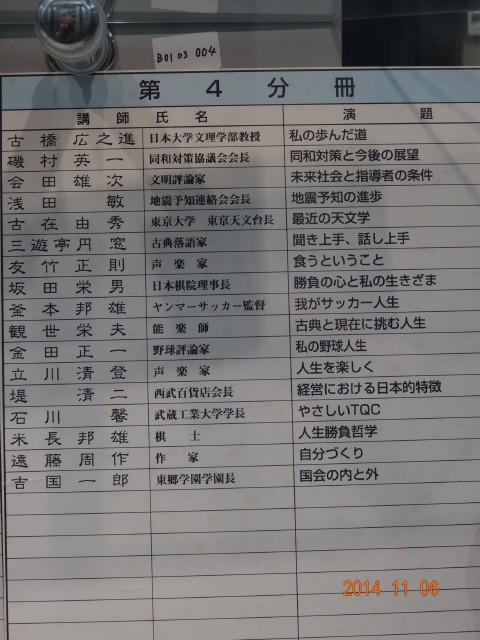 B01 03 004
第4分冊
講師氏名 演題
古橋広之進 日本大学文理学部教授 私の歩んだ道
磯村英一 同和対策協議会会長 同和対策と今後の展望
会田雄次 文明評論家 未来社会と指導者の条件
浅田敏 地震予知連絡会会長 地震予知の進歩
古在由秀 東京大学 東京天文台長 最近の天文学
三遊亭円窓 古典落語家 聞き上手、話し上手
友竹正則 声楽家 食うということ
坂田栄男 日本棋院理事長 勝負の心と私の生きざま
釜本邦雄 ヤンマーサッカー監督 我がサッカー人生
観世栄夫 能楽師 古典と現在に挑む人生
金田正一 野球評論家 私の野球人生
立川清登 声楽家 人生を楽しく
堤清二 西武百貨店会長 経営における日本的特徴
石川馨 武蔵工業大学学長 やさしいTQC
米長邦雄 棋士 人生勝負哲学
遠藤周作 作家 自分づくり
吉国一郎 東郷学園学園長 国会の内と外
2014 11 06